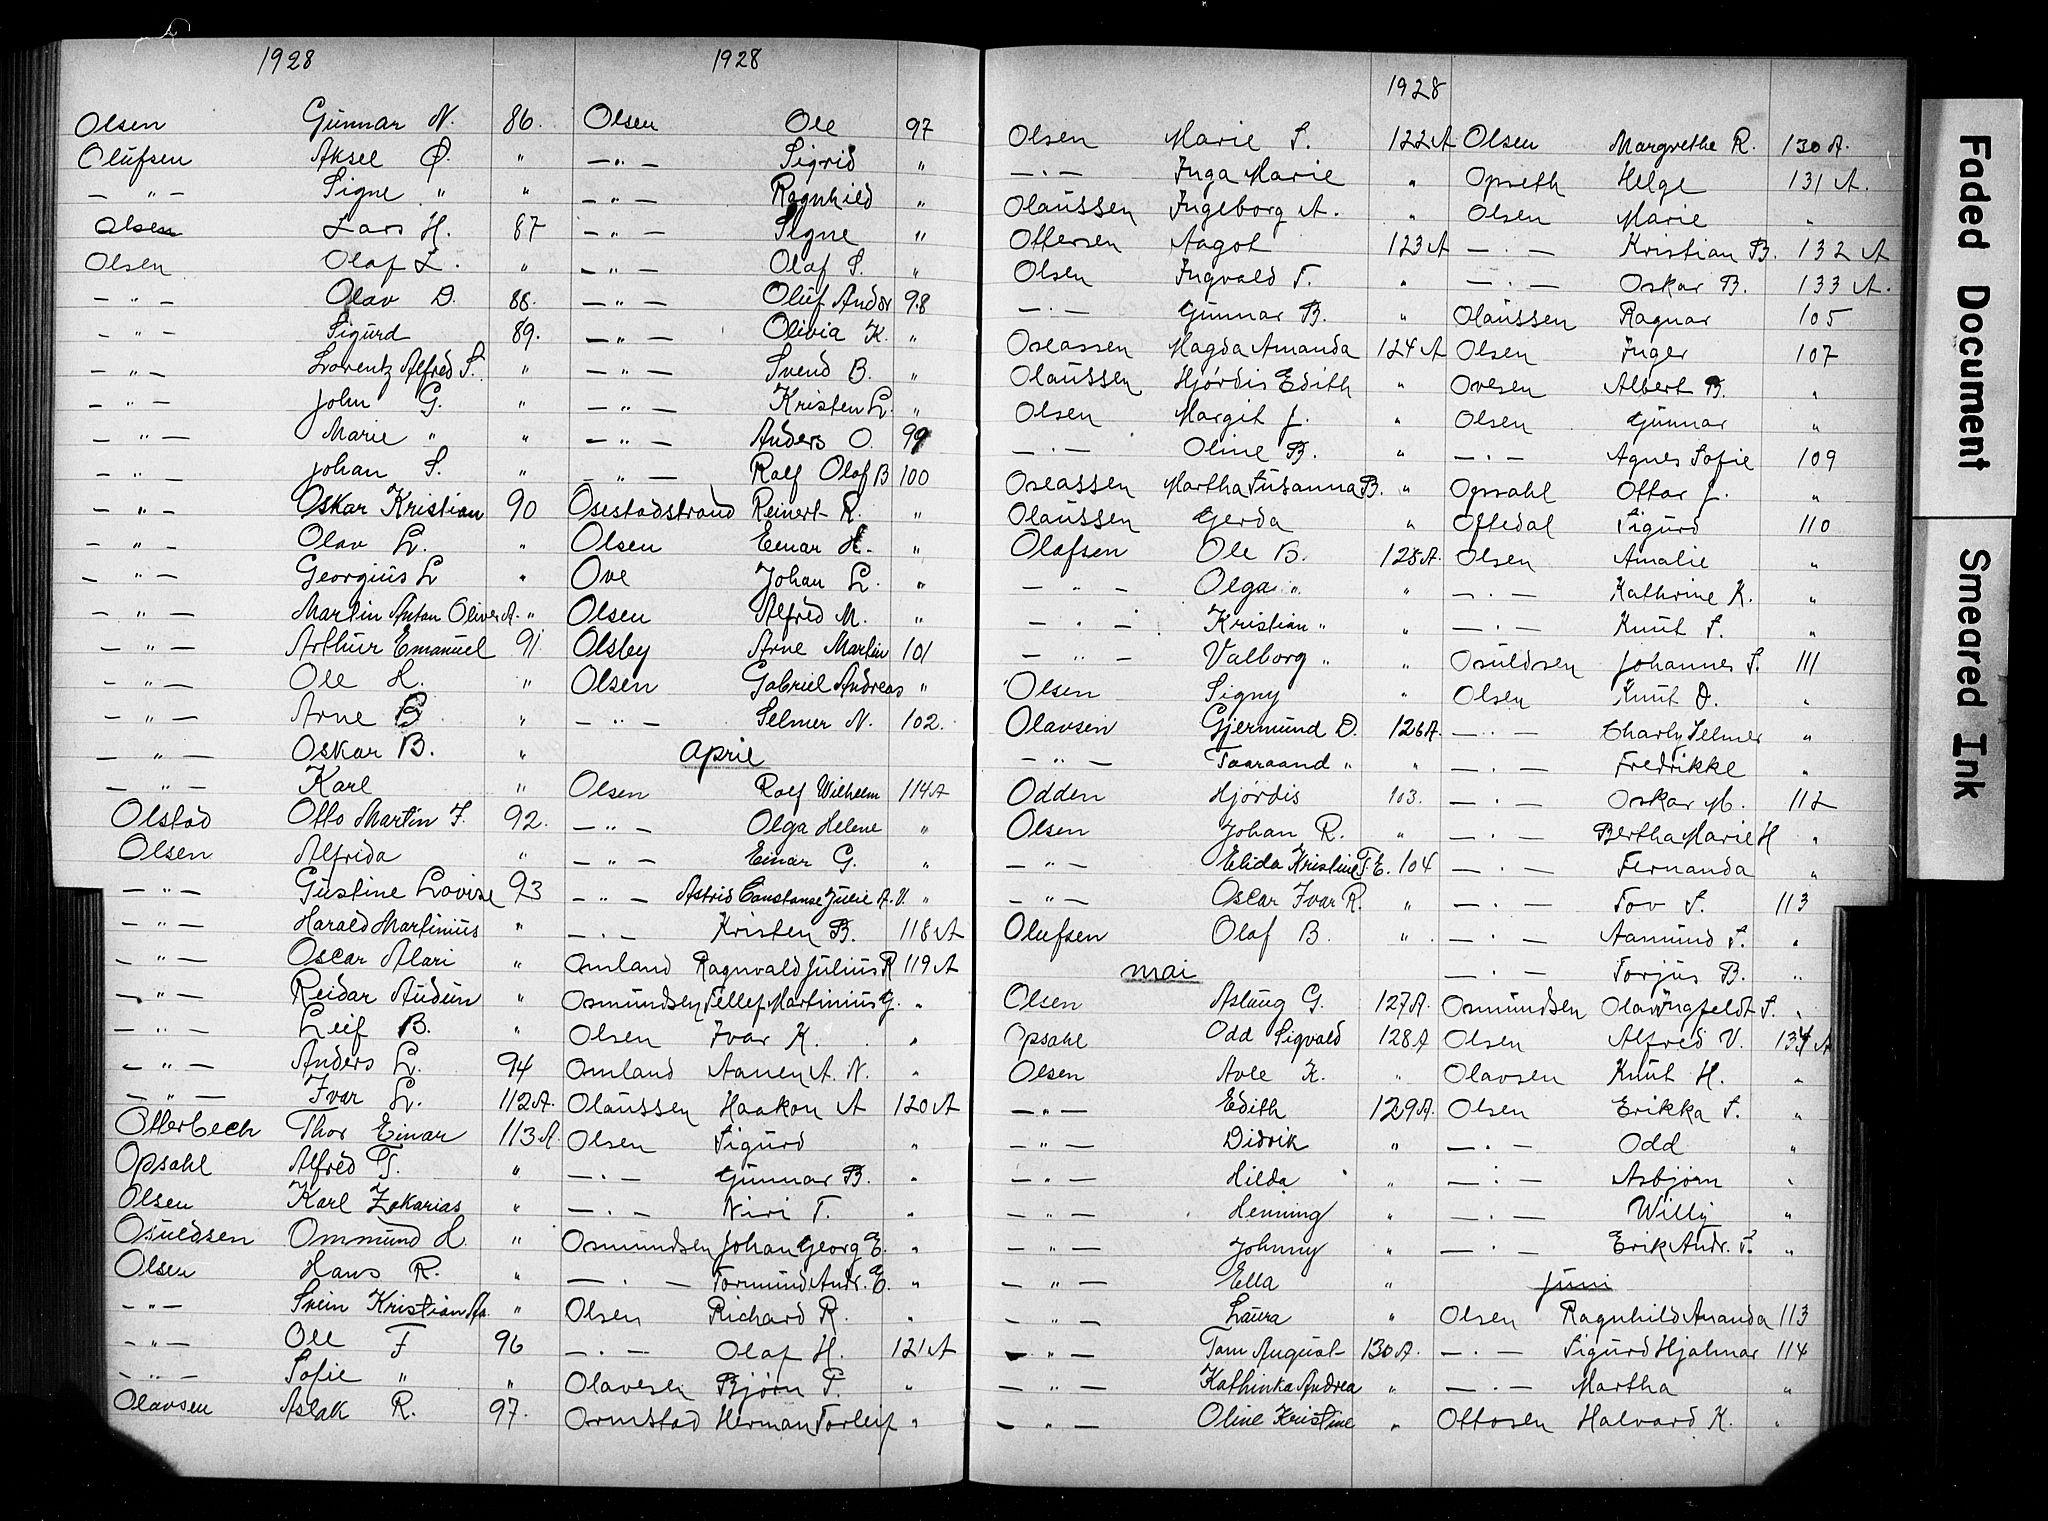 1928
Olsen Gunnar N. 86.
Olufsen Aksel Ø. "
— " — Signe " "
Olsen Lars H. 87
Olsen Olaf L. "
— " — Olav D. 88.
— " — Sigurd 89.
— " — Lorentz Alfred S. "
— " — John G. "
— " — Marie " "
— " — Johan S. "
— " — Oskar Kristian 90
— " — Olav L. "
— " — Georgius L "
— " — Martin Anton Oliver A. "
— " — Arthur Emanuel 91
— " — Ole H. "
— " — Arne B "
— " — Oskar B. "
— " — Karl "
Olstad Otto Martin F. 92.
Olsen Alfrida "
— " — Gustine Lovise 93
— " — Harald Martinius "
— " — Oscar Alari "
— " — Reidar Audun "
— " — Leif B. "
— " — Anders L. 94
— " — Ivar L. 112A.
Otterbech Thor Einar 113A.
Opsahl Alfred T. "
Olsen Karl Zakarias "
Osuldsen Ommund H. "
Olsen Hans R. "
— " — Svein Kristian "
— " — Ole F 96
— " — Sofie " "
Olavsen Aslak R. 97.
1928
Olsen Ole 97
— " — Sigrid "
— " — Ragnhild "
— " — Signe "
— " — Olaf S. "
— " — Oluf Andor 98
— " — Olivia K. "
— " — Svend B. "
— " — Kristen L. "
— " — Anders O. 99
— " — Rolf Olaf B 100
Osestadstrand Reinert R. "
Olsen Einar H. "
Ove Johan L. "
Olsen Alfred M. "
Olsby Arne Martin 101
Olsen Gabriel Andreas "
— " — Selmer N. 102.
April
Olsen Rolf Wilhelm 114A
— " — Olga Helene "
— " — Einar G. "
— " — Astrid Constanse Julie A. V. "
— " — Kristen B. 118A
Omland Ragnvald Julius R 119A
Osmundsen Tellef Martinius G. "
Olsen Ivar K. "
Omland Aanen A. N. "
Olaussen Haakon A 120A
Olsen Sigurd "
— " — Gunnar B. "
— " — Niri T. "
Osmundsen Johan Georg E. "
— " — Tormund Andr. E. "
Olsen Richard R. "
— " — Olaf H. 121A
Olavesen Bjørn T. "
Ormstad Herman Torleif "
1928
Olsen Marie S. 122A
— " — Inga Marie "
Olaussen Ingeborg A. "
Ottersen Aagot 123A
Olsen Ingvald T. "
— " — Gunnar B. "
Oseassen Magda Amanda 124A
Olaussen Hjørdis Edith "
Olsen Margit J. "
— " — Oline B. "
Oseassen Martha Susanna B. "
Olaussen Gerda "
Olafsen Ole B. 125A.
— " — Olga " "
— " — Kristian " "
— " — Valborg " "
Olsen Signy "
Olavsen Gjermund D. 126A.
— " — Taaraand " "
Odden Hjørdis 103.
Olsen Johan R. "
— " — Elida Kristine T.E. 104
— " — Oscar Ivar R. "
Olufsen Olaf B. "
mai
Olsen Aslaug G. 127A.
Opsahl Odd Sigvald 128A
Olsen Avle K. "
— " — Edith 129A.
— " — Didrik "
— " — Hilda "
— " — Henning "
— " — Johnny "
— " — Ella "
— " — Laura "
— " — Tom August 130A.
— " — Kathinka Andrea "
— " — Oline Kristine "
Olsen Margrethe R. 130A.
Opseth Helge 131A.
Olsen Marie "
— " — Kristian B. 132A
— " — Oskar B. 133A.
Olaussen Ragnar 105
Olsen Inger 107
Ovesen Albert B. "
Olsen Gunnar "
— " — Agnes Sofie 109
Opsahl Ottar J. "
Oftedal Sigurd 110
Olsen Amalie "
— " — Kathrine K. "
— " — Knut S. "
Osuldsen Johannes S. 111
Olsen Knut O. "
— " — Charly Selmer "
— " — Fredrikke "
— " — Oskar M. 112
— " — Bertha Marie H "
— " — Fernanda "
— " — Tov S. 113
— " — Aamund S. "
— " — Torjus B. "
Osmundsen Olav Ingfeldt S. "
Olsen Alfred V. 134A
Olavsen Knut H. "
Olsen Erikka S. "
— " — Odd "
— " — Asbjørn "
— " — Willy "
— " — Erik Andr. T. "
juni
Olsen Ragnhild Amanda 113
— " — Sigurd Hjalmar 114
— " — Martha "
Ottosen Halvard K. "
Faded Document
Smeared Ink